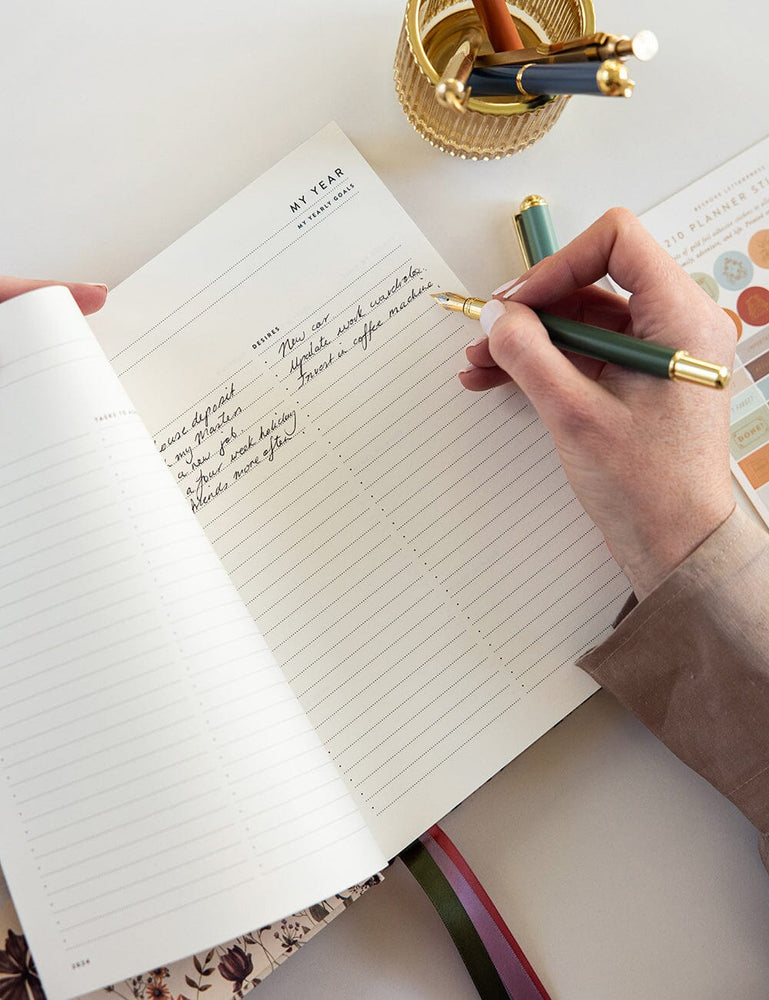 MY YEAR
MY YEARLY GOALS
DESIRES
New car
Update work wardrobe.
Invest in coffee machine.
deposit
my Masters
a new job.
a four week holiday
more often.
TASKS TO
2024
BESPOKE LETTERPRESS
210 PLANNER
DONE!